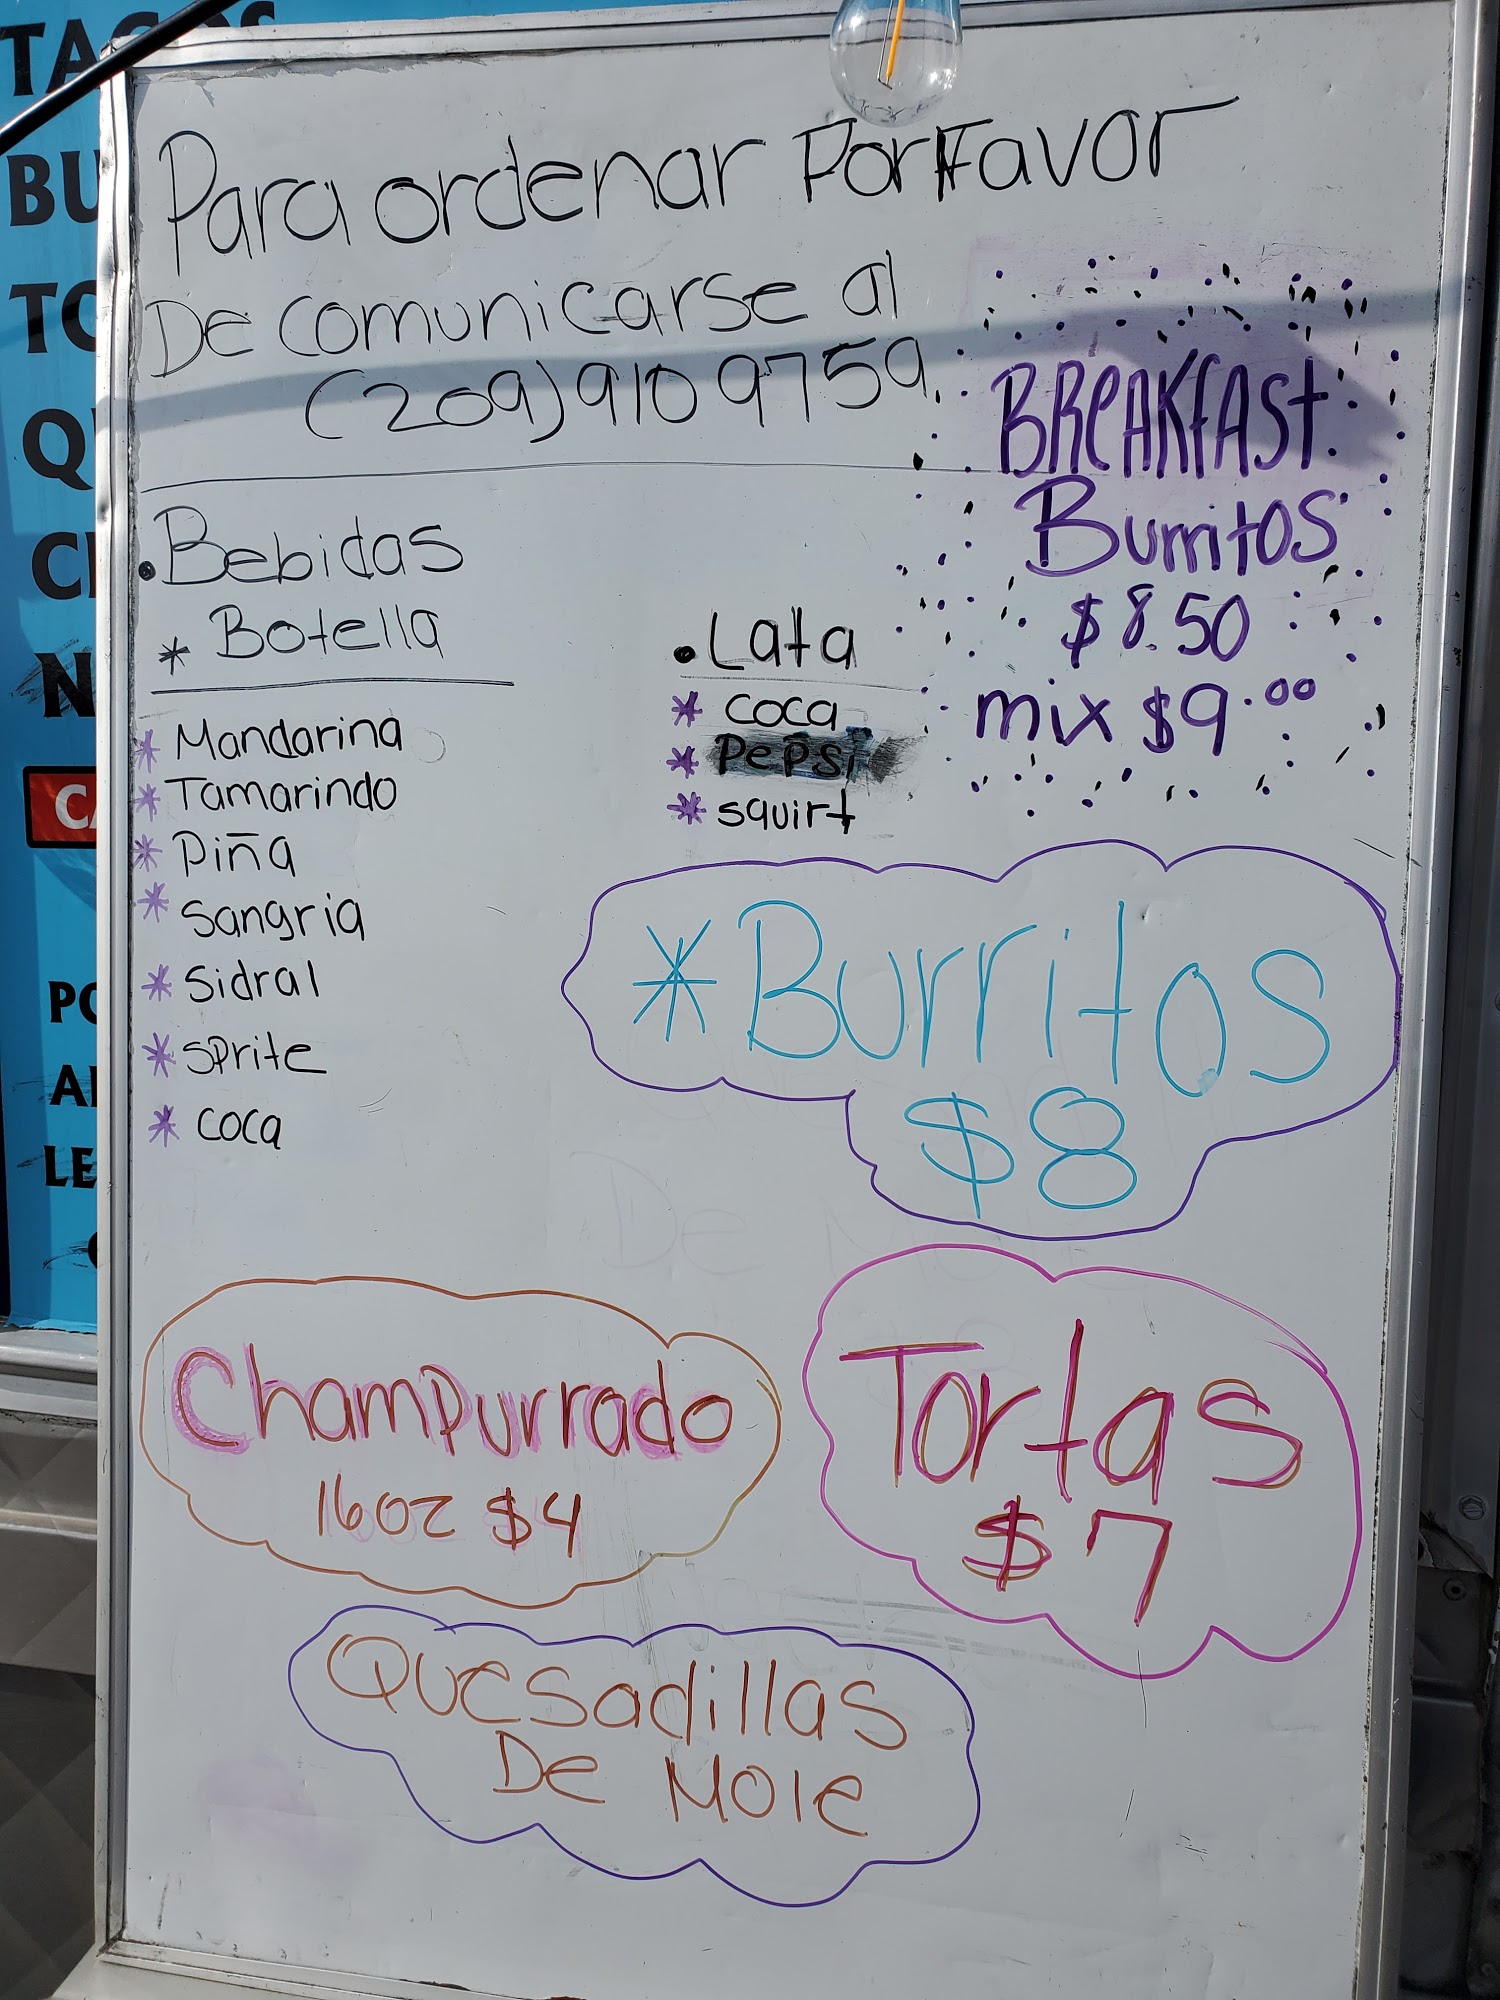 TACOS
Para ordenar Por Favor
De comunicarse al
(209) 910 9759
BREAKfASt
Burritos
$8.50
mix $9.00
• Bebidas
* Botella
* Mandarina
* Tamarindo
* Piña
* Sangria
* Sidral
* Sprite
* coca
• Lata
* coca
* Pepsi
* squirt
* Burritos
$8
Champurrado
16oz $4
Tortas
$7
Quesadillas
De Mole